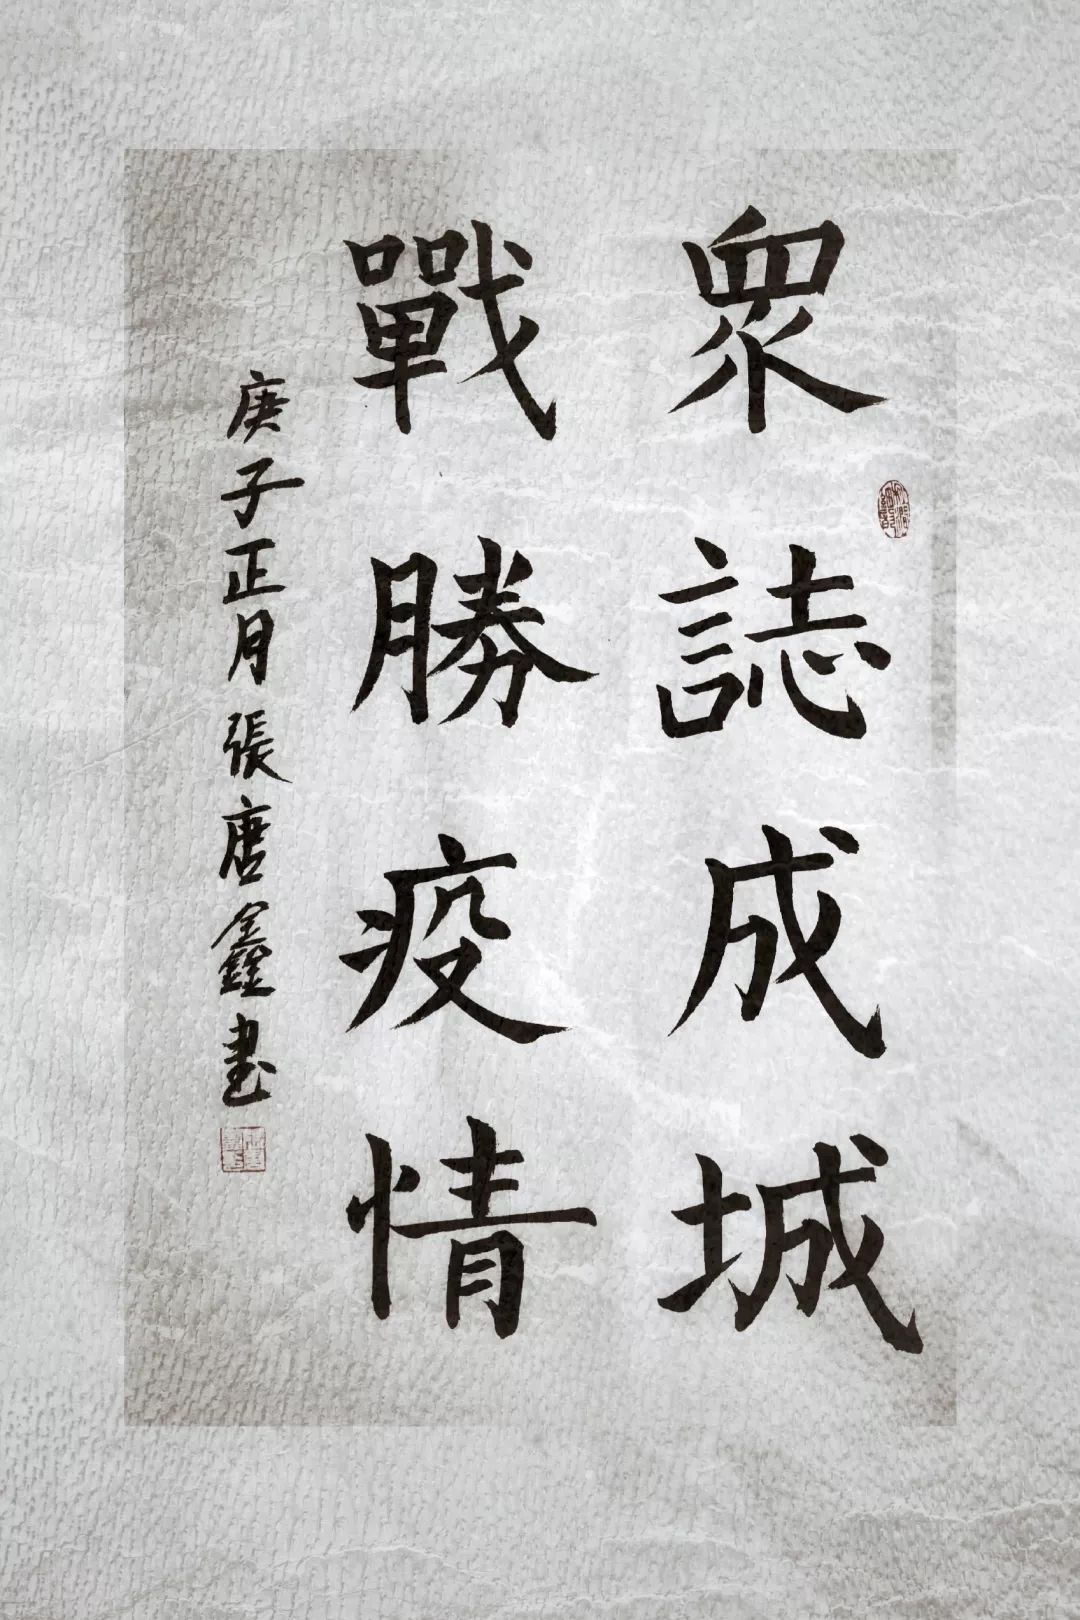 眾誌成城
戰勝疫情
庚子正月張唐鑫書